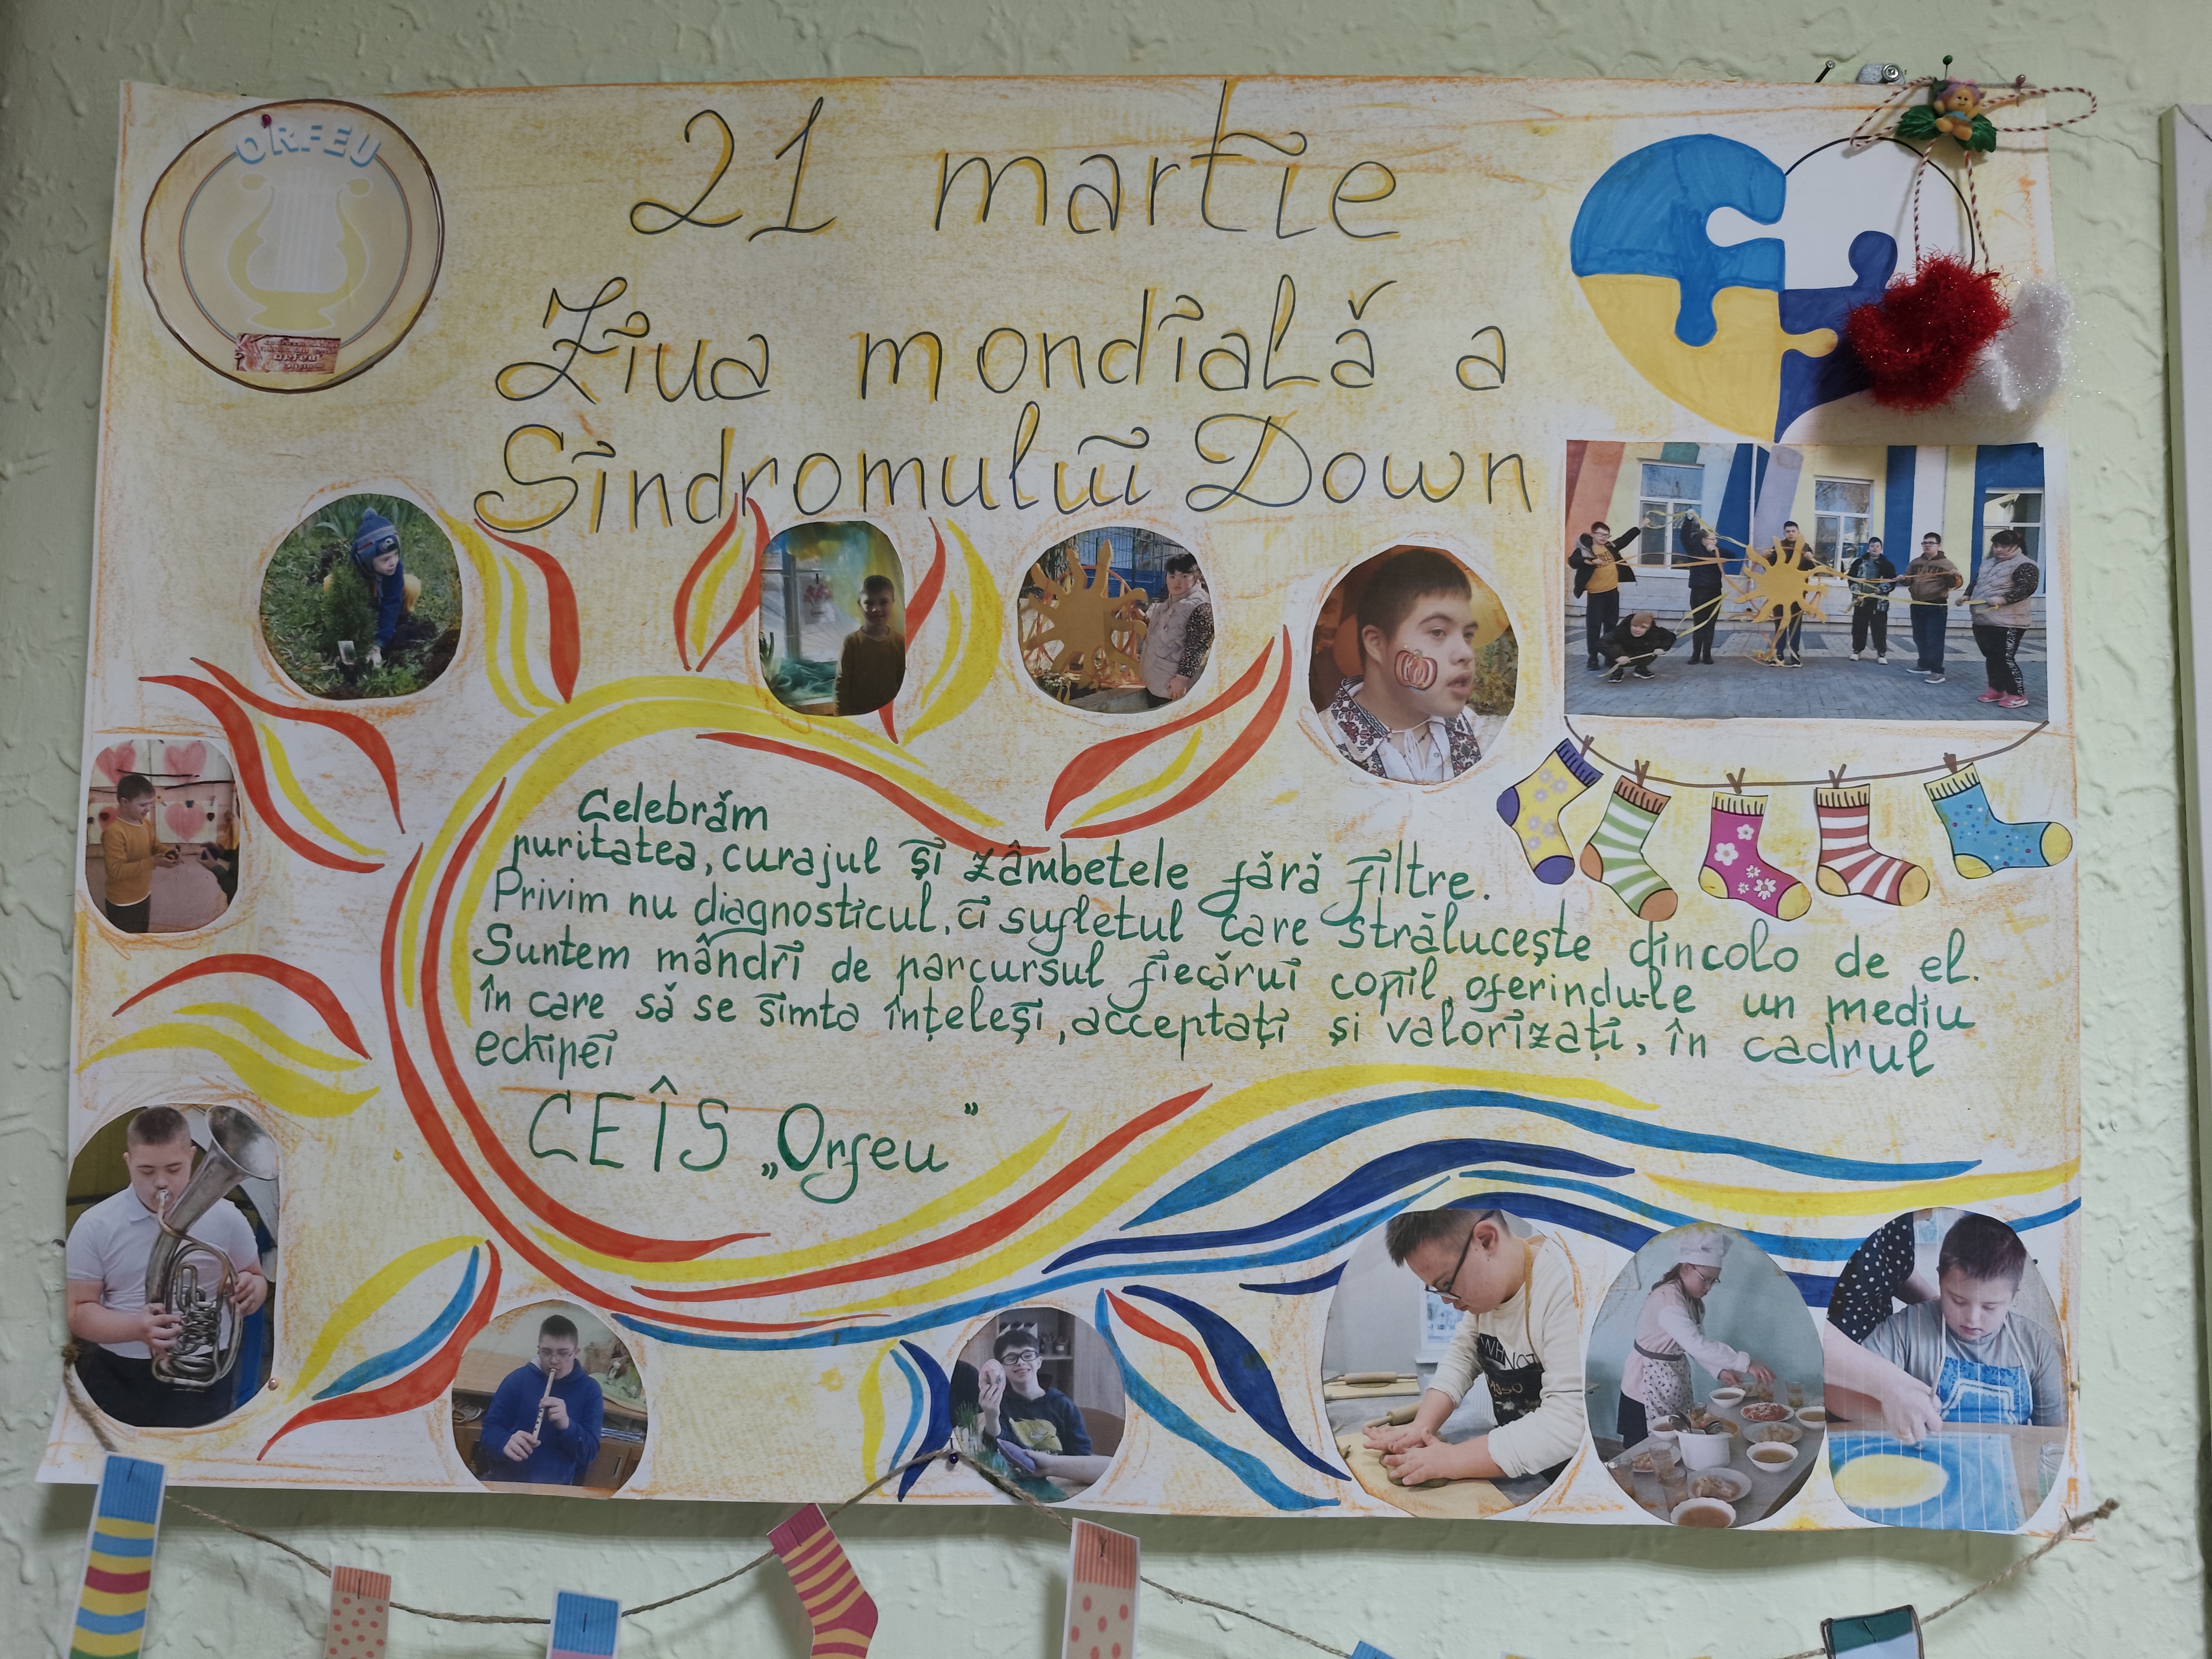 ORFEU
21 martie
Ziua mondială a
Sindromului Down
Celebrăm
puritatea, curajul și zâmbetele fără filtre.
Privim nu diagnosticul, ci sufletul care strălucește dincolo de el.
Suntem mândri de parcursul fiecărui copil, oferindu-le un mediu
în care să se simta înțeleși, acceptați și valorizați, în cadrul
echipei
CEÎS „Orfeu”